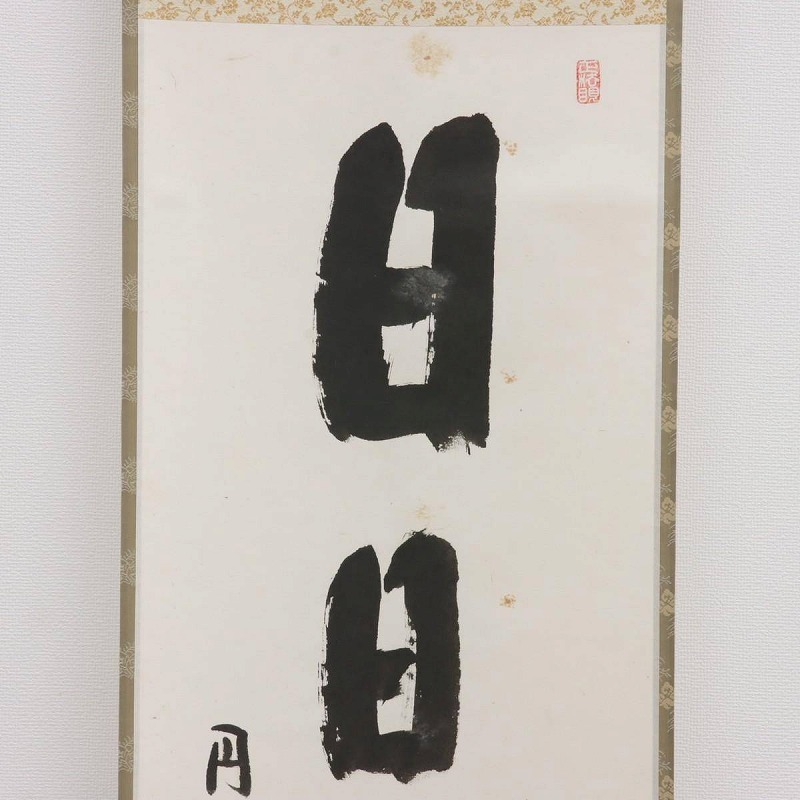 日日
円